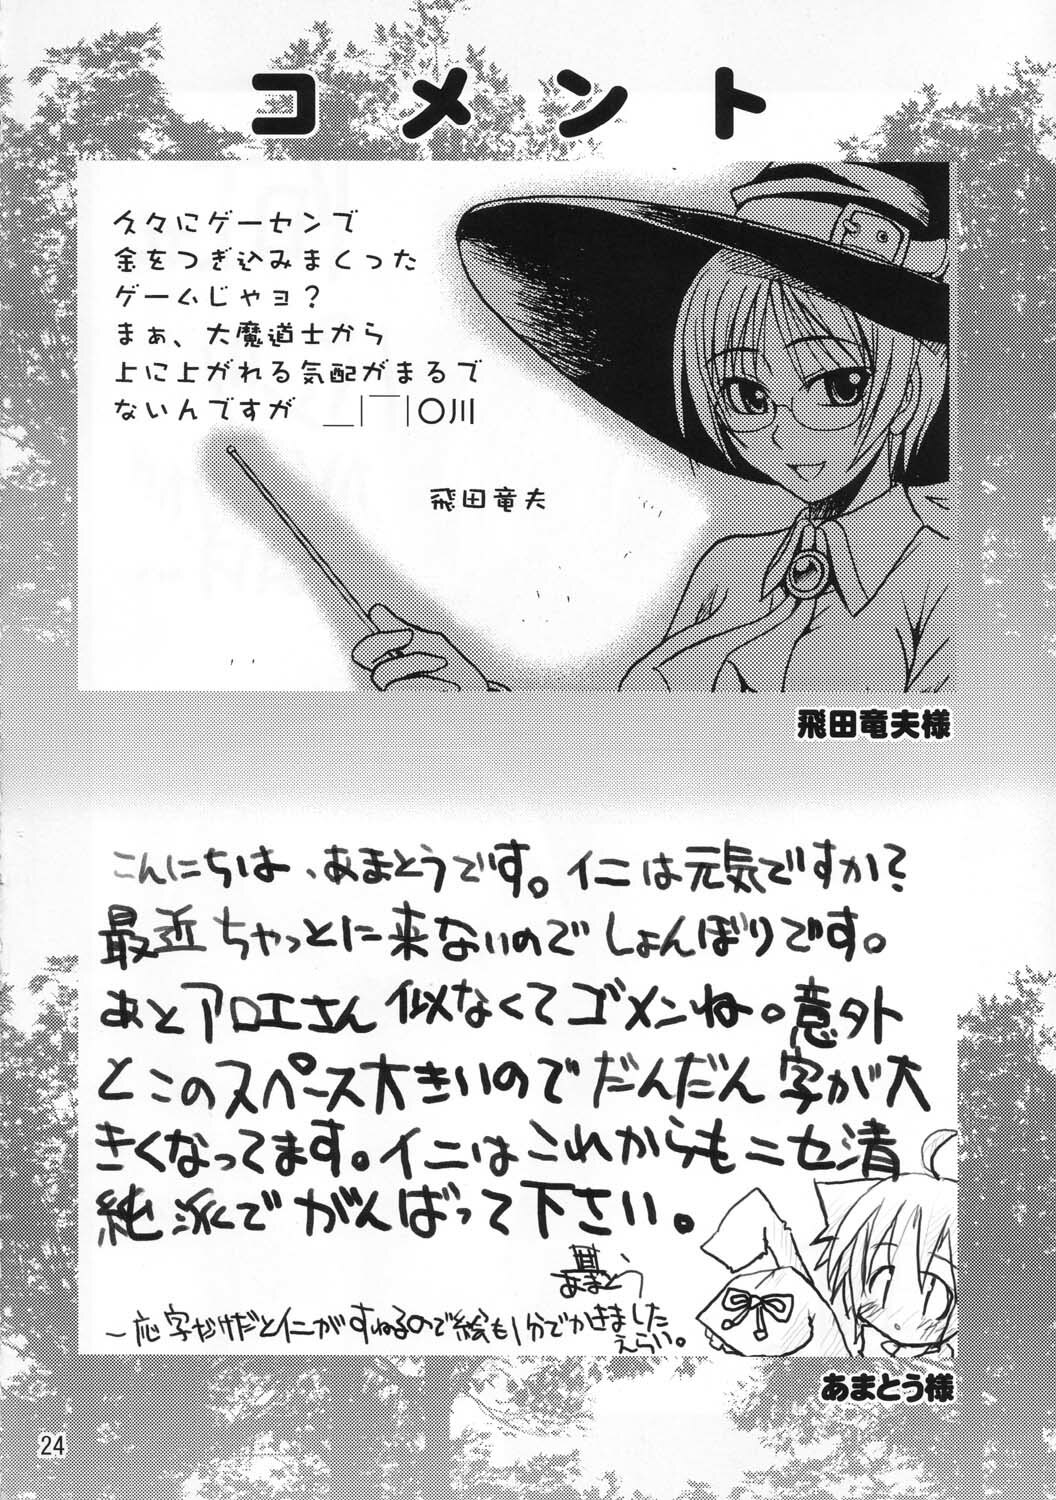 コメント
久々にゲーセンで
金をつぎ込みまくった
ゲームじゃョ?
まぁ、大魔道士から
上に上がれる気配がまるで
ないんですが ＿|￣|○川
飛田竜夫
飛田竜夫様
こんにちは、あまとうです。イニは元気ですか?
最近ちゃっとに来ないのでしょんぼりです。
あとアロエさん似なくてゴメンね。意外
とこのスペース大きいのでだんだん字が大
きくなってます。イニはこれからもニセ清
純派でがんばって下さい。
あまとう
一応字だけだとイニがすねるので絵も1分でかきました
えらい。
あまとう様
24